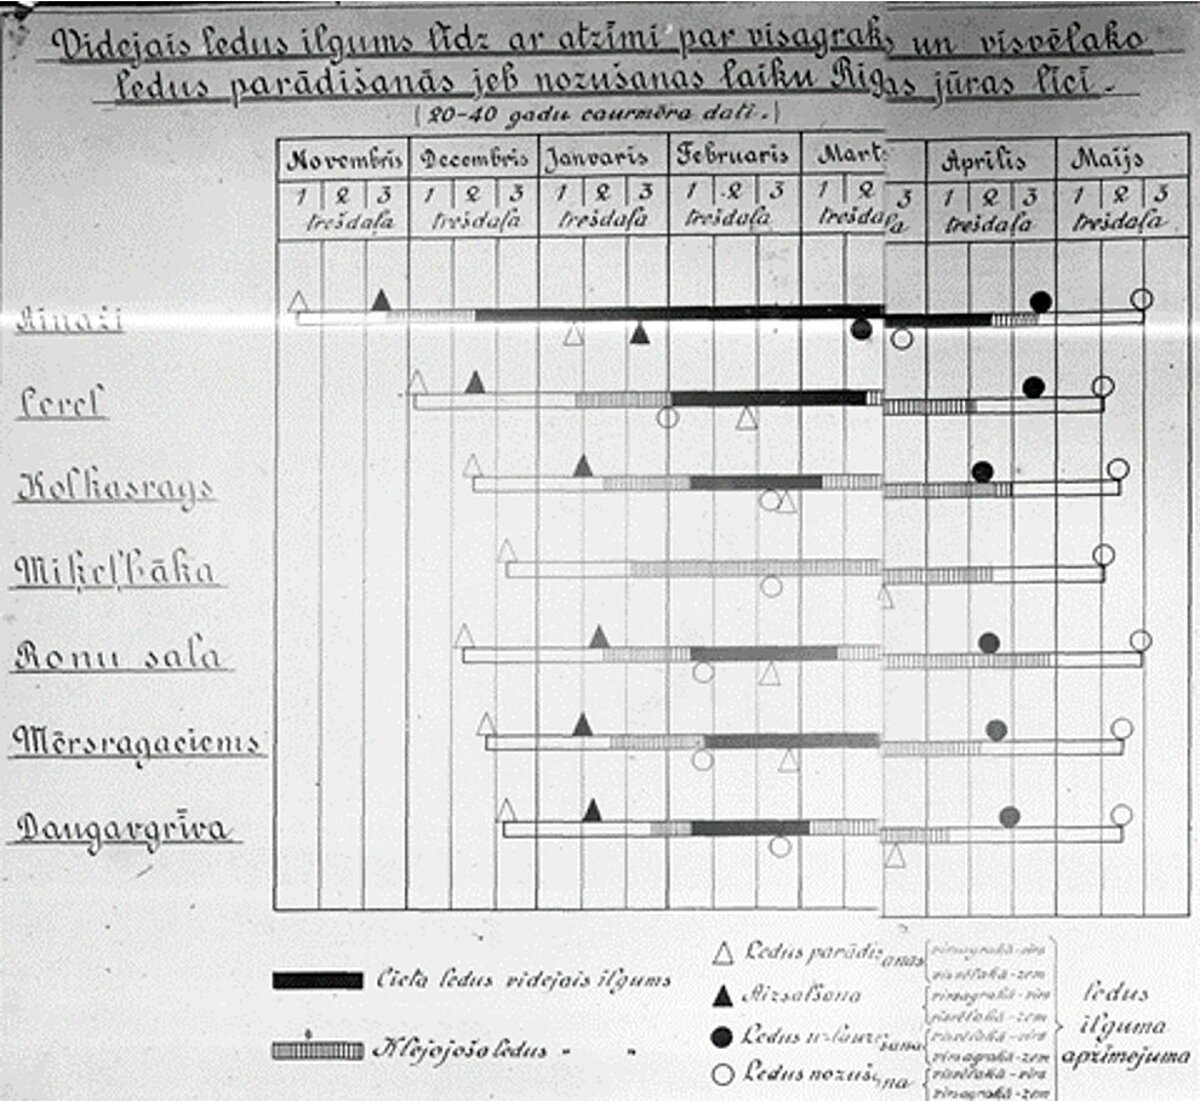 Videjais ledus ilgums līdz ar atzīmi par visagrako un visvēlako
ledus parādišanās jeb nozušanas laiku Rigas jūras līcī.
(20-40 gadu caurmēra dati.)
Novembris Decembris Janvaris Februaris Marts Aprilis Maijs
1 2 3 1 2 3 1 2 3 1 2 3 1 2 3 1 2 3 1 2 3
trešdaļa trešdaļa trešdaļa trešdaļa trešdaļa trešdaļa trešdaļa
Ainaži
Cerel
Kolkasrags
Miķeļbāka
Roņu sala
Mērsragaciems
Daugavgrīva
Cieta ledus videjais ilgums
Klejojoša ledus " "
Ledus parādišanas
visagrakā-virs
visvēlakā-zem
Aizsalšana
visagrakā-virs
visvēlakā-zem
Ledus uzlaušana
visvēlakā-virs
visagrakā-zem
Ledus nozušana
visvēlakā-virs
visagrakā-zem
ledus
ilguma
apzīmejuma